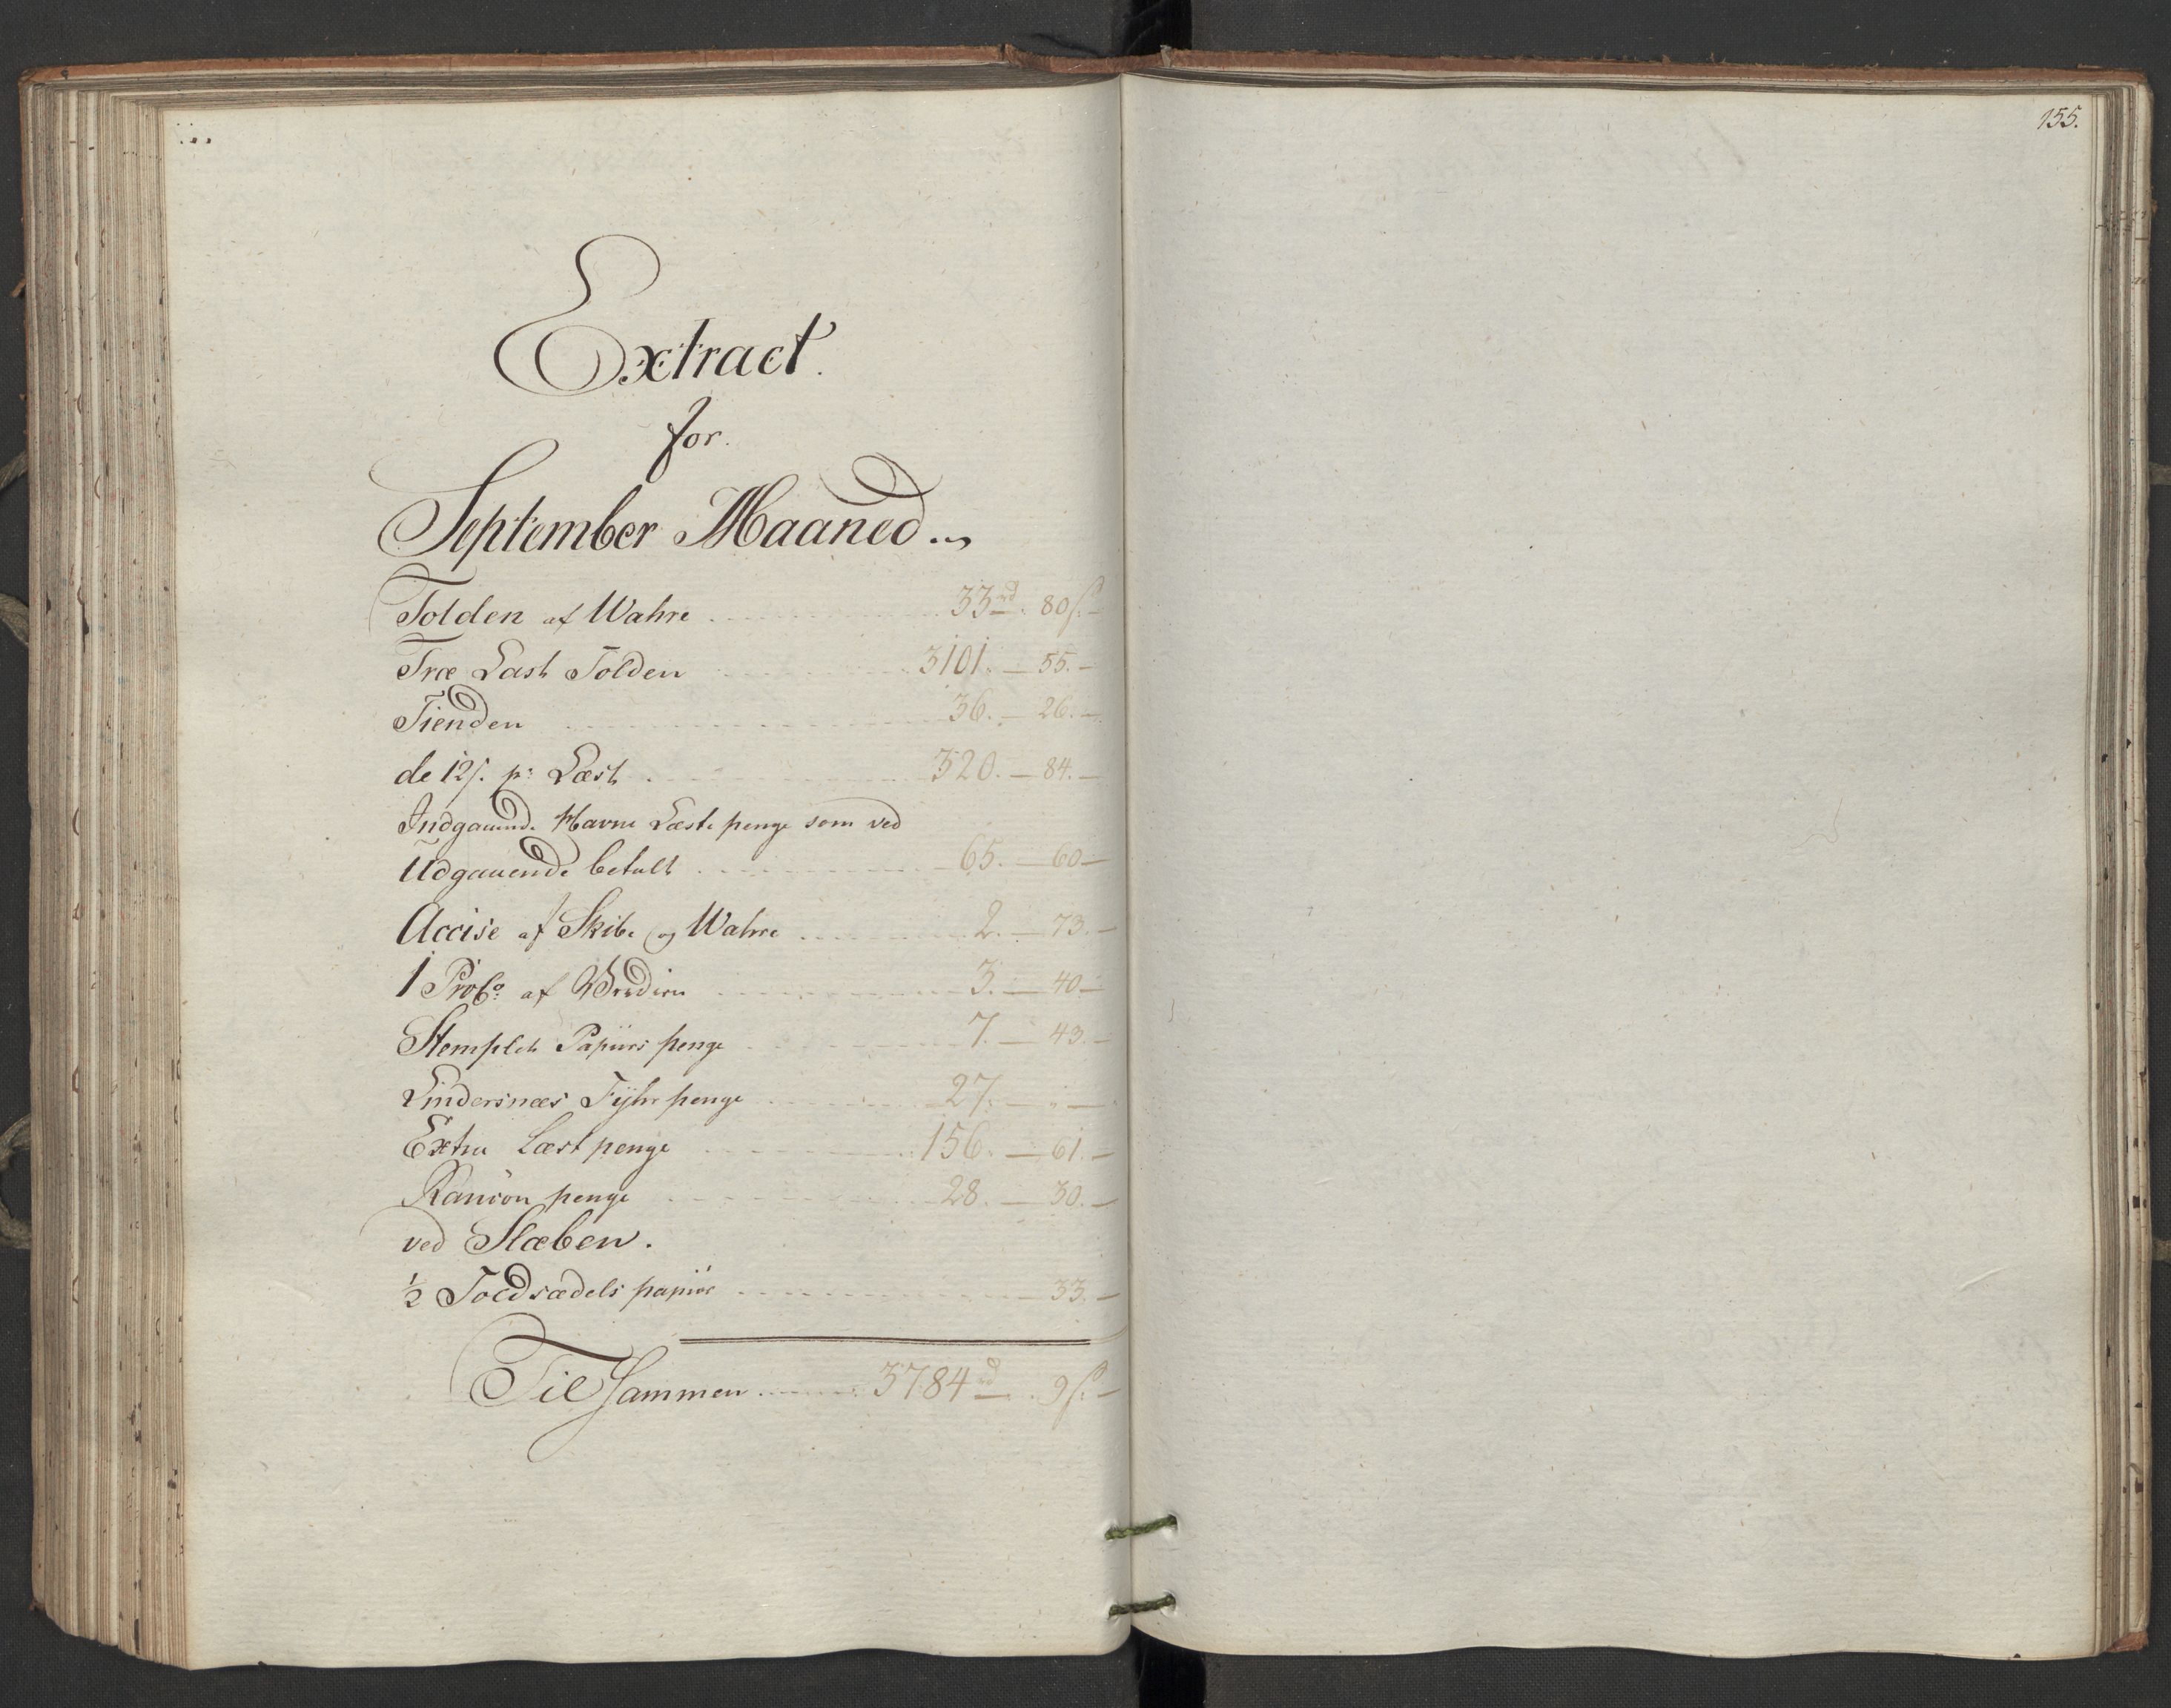 155.
Extract.
for.
September Maaned
Tolden af Wahre 33rd. 80s.
Træ Last Tolden 3101. 55.
Tienden 36. 26.
de 12s. pr Læst 320. 84.
Indgaaende Havne Læste penge som ved
Udgaaende betalt 65. 60
Accise af Skibe og Wahre 2. 73.
1 Proco: af Værdien 3. 40
Stemplet Papiirs penge 7. 43.
Lindersnæs Fÿhr penge 27.
Extra Læst penge 156. 61.
Ranson penge 28. 30.
ved Slæben.
½ Toldsædels papiir 33.
Til Sammen 3784rd. 9s.